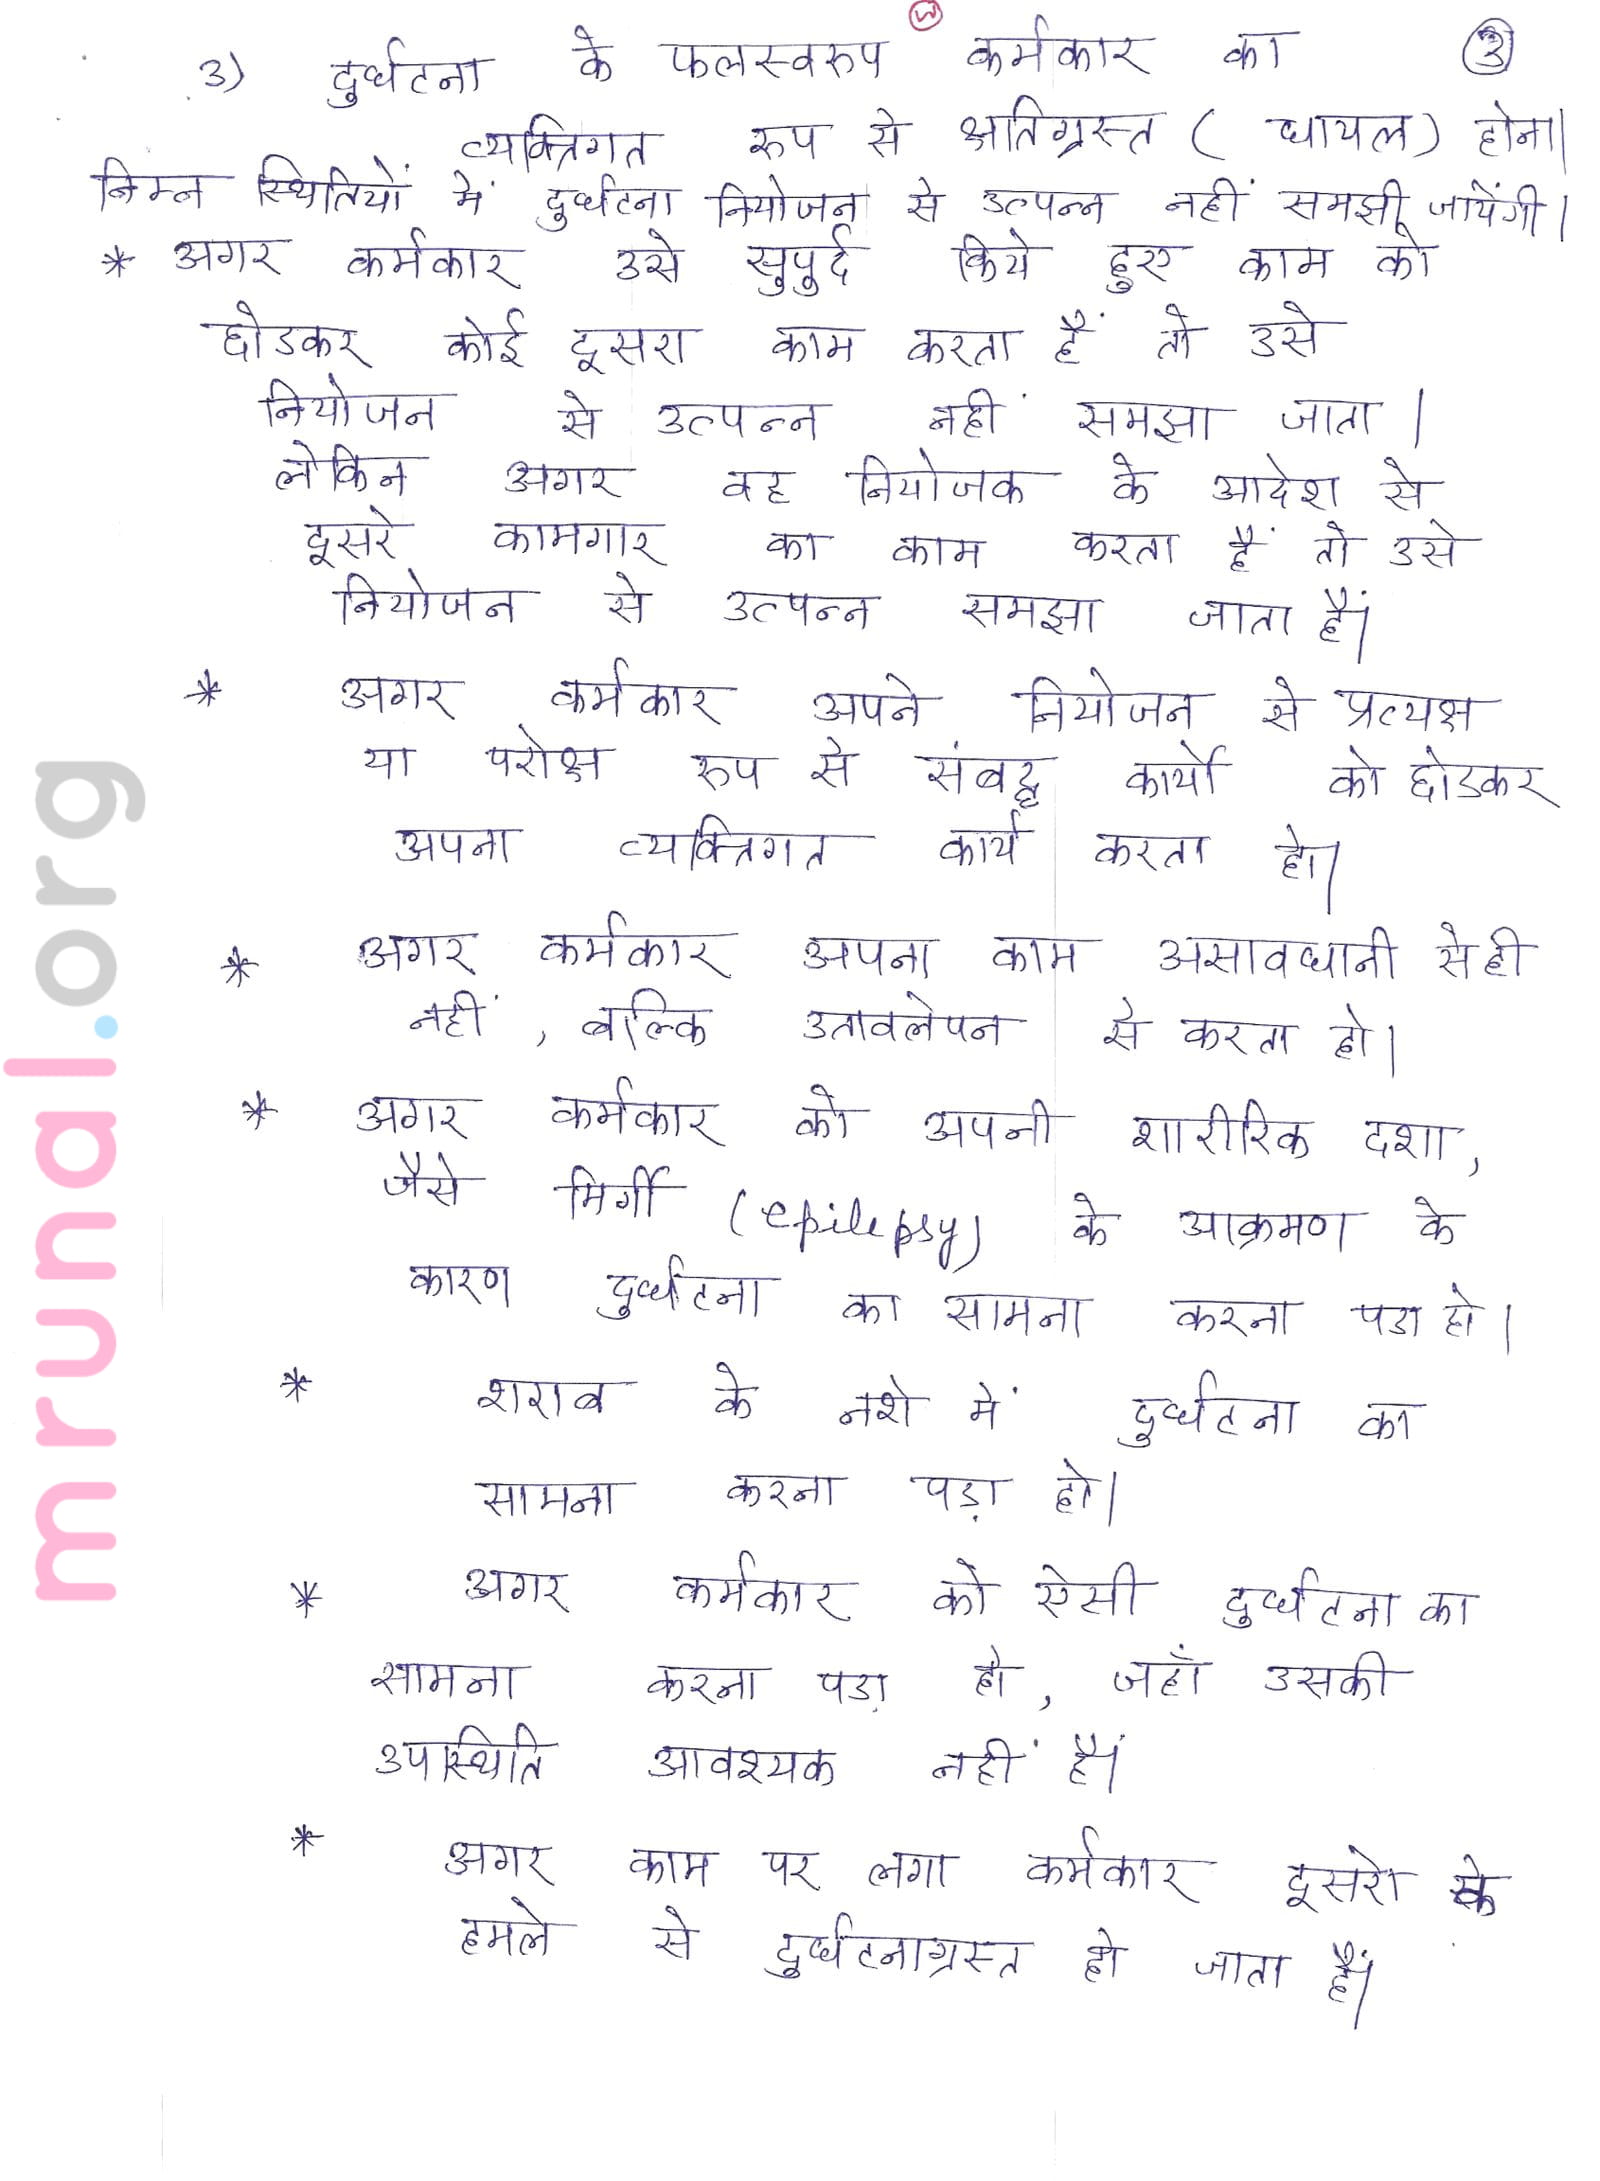 3) दुर्घटना के फलस्वरुप कर्मकार का ③
व्यक्तिगत रुप से क्षतिग्रस्त ( घायल) होना।
निम्न स्थितियों में दुर्घटना नियोजन से उत्पन्न नहीं समझी जायेंगी।
* अगर कर्मकार उसे सुपुर्द किये हुए काम को
छोडकर कोई दूसरा काम करता हैं तो उसे
नियोजन से उत्पन्न नहीं समझा जाता।
लेकिन अगर वह नियोजक के आदेश से
दूसरे कामगार का काम करता हैं तो उसे
नियोजन से उत्पन्न समझा जाता हैं।
* अगर कर्मकार अपने नियोजन से प्रत्यक्ष
या परोक्ष रुप से संबद्ध कार्यो को छोडकर
अपना व्यक्तिगत कार्य करता हो।
* अगर कर्मकार अपना काम असावधानी से ही
नहीं, बल्कि उतावलेपन से करता हो।
* अगर कर्मकार को अपनी शारीरिक दशा,
जैसे मिर्गी (epilepsy) के आक्रमण के
कारण दुर्घटना का सामना करना पडा हो।
* शराब के नशे में दुर्घटना का
सामना करना पड़ा हो।
* अगर कर्मकार को ऐसी दुर्घटना का
सामना करना पड़ा हो, जहाँ उसकी
उपस्थिति आवश्यक नहीं हैं।
* अगर काम पर लगा कर्मकार दूसरो के
हमले से दुर्घटनाग्रस्त हो जाता हैं।
mrunal.org